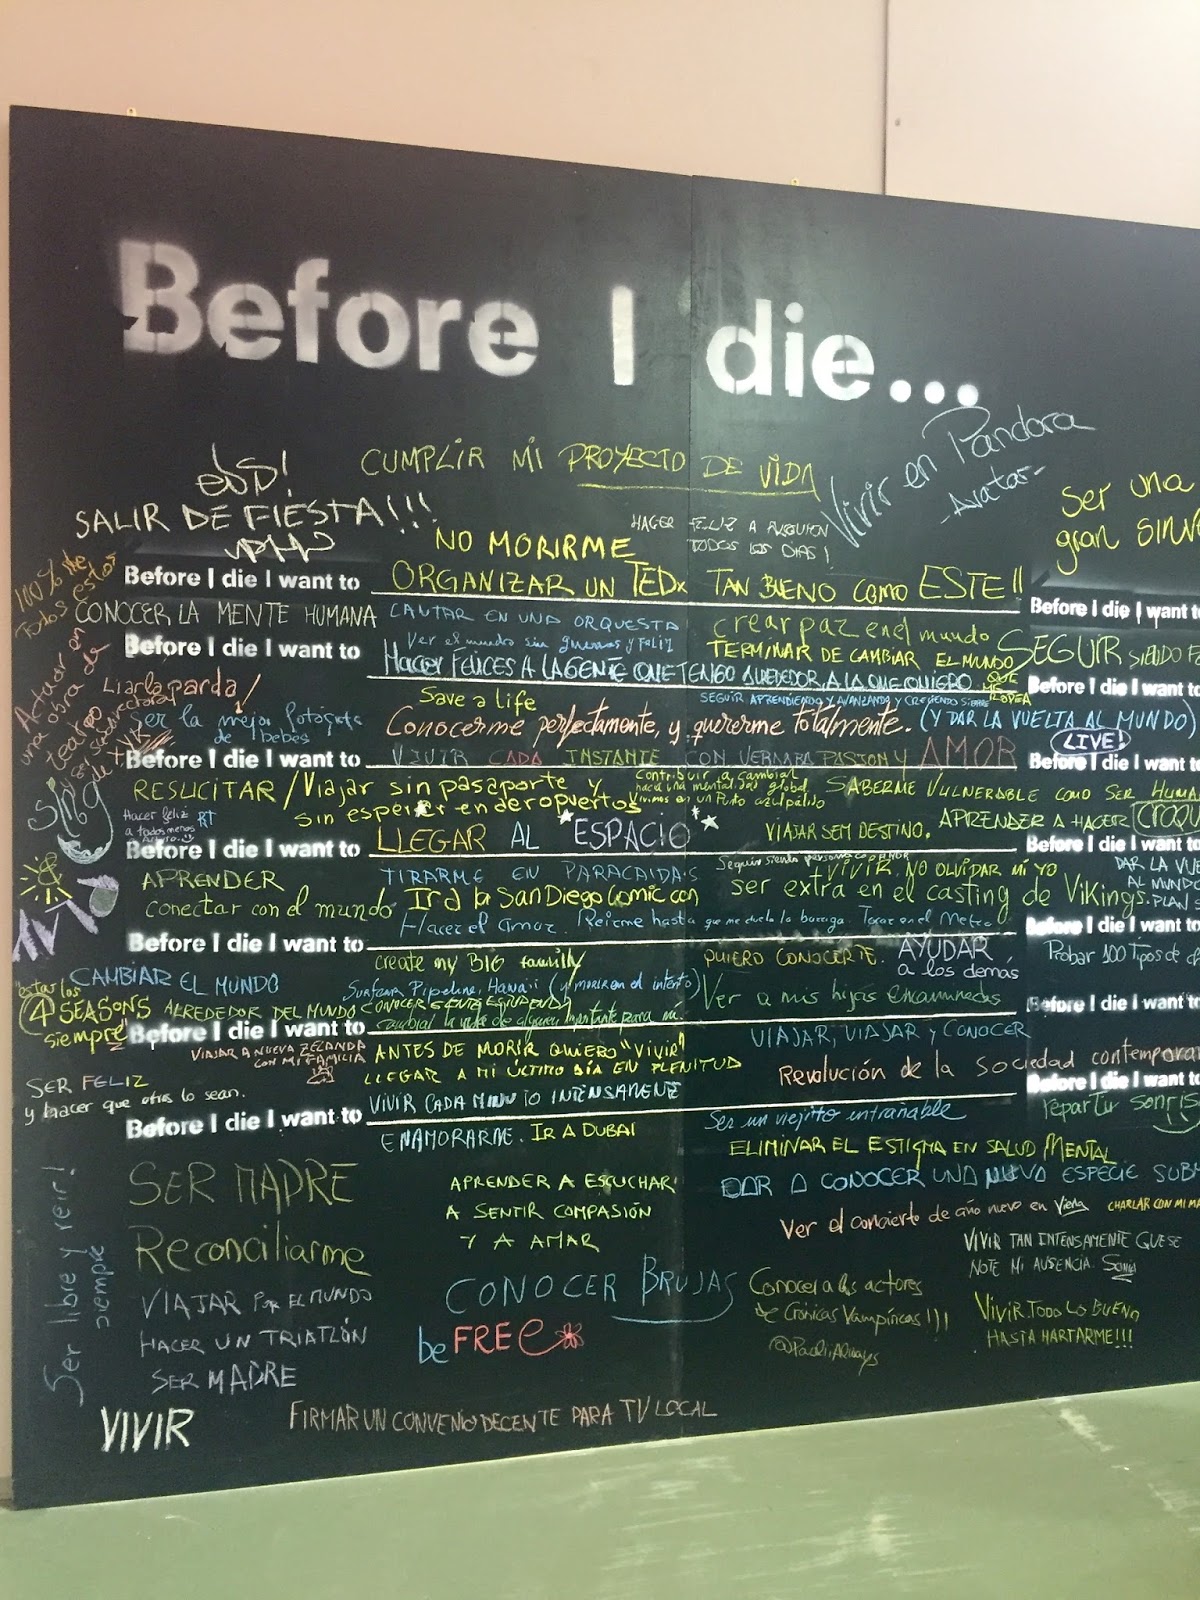 Before I die...
CUMPLIR MI PROYECTO DE VIDA
Vivir en Pandora
-Avatar-
ser una
gran
SALIR DE FIESTA!!!
HACER FELIZ A ALGUIEN
TODOS LOS DIAS!
NO MORIRME
Before I die I want to ORGANIZAR UN TEDx TAN BUENO COMO ESTE!!
100% de
Todos estos
Before I die I want to
CONOCER LA MENTE HUMANA
CANTAR EN UNA ORQUESTA
crear paz en el mundo
Before I die I want to
Ver el mundo sin guerras y FELIZ
TERMINAR DE CAMBIAR EL MUNDO
SEGUIR SIENDO
HACER FELICES A LA GENTE QUE TENGO ALREDEDOR, A LA QUE QUIERO
QUE
ME
RODEA
Before I die I want to
Actuar en
una obra de
teatro
Liarla parda!
Save a life
SEGUIR APRENDIENDO Y AVANZANDO Y CRECIENDO SIEMPRE
Ser la mejor fotógrafa
de bebés
Conocerme perfectamente, y quererme totalmente. (Y DAR LA VUELTA AL MUNDO)
LIVE!
Before I die I want to VIVIR CADA INSTANTE CON VERDADERA PASION Y AMOR
Before I die I want to
RESUCITAR / Viajar sin pasaporte y
sin esperar en aeropuertos
Contribuir a cambiar
hacia una mentalidad global
Vivimos en un Punto azul pálido
SABERME VULNERABLE COMO SER
Sing
Hacer feliz
a todos menos
RT
VIAJAR SEM DESTINO.
APRENDER A HACER CROQU
Before I die I want to LLEGAR AL ESPACIO
Before I die I want to
APRENDER
TIRARME EN PARACAIDAS
Seguir siendo persona
VIVIR. NO OLVIDAR MI YO
DAR LA
AL MUNDO
conectar con el mundo
Ir a la San Diego Comic con
ser extra en el casting de Vikings.
PLAN
Before I die I want to
Hacer el amor. Reirme hasta que me duela la barriga. Tocar en el Metro
Before I die I want to
create my BIG familly
QUIERO CONOCERTE.
AYUDAR
a los demás
Probar 100 Tipos de
CAMBIAR EL MUNDO
Surfear Pipeline, Hawaii (y morir en el intento)
Ver a mis hijas encaminadas
estar las
4 SEASONS
siempre
ALREDEDOR DEL MUNDO CONOCER GENTE ESTUPENDA
Before I die I want to
cambiar la vida de alguien importante para mi.
Before I die I want to
VIAJAR A NUEVA ZELANDA
CON MI FAMILIA
ANTES DE MORIR QUIERO "VIVIR"
VIAJAR, VIAJAR Y CONOCER
LLEGAR A MI ÚLTIMO DÍA EN PLENITUD
Revolución de la Sociedad
SER FELIZ
y hacer que otros lo sean.
Before I die I want to
Before I die I want to VIVIR CADA MINUTO INTENSAMENTE
Ser un viejito entrañable
repartir
ENAMORARME. IR A DUBAI
ELIMINAR EL ESTIGMA EN SALUD MENTAL
SER MADRE
APRENDER A ESCUCHAR
A SENTIR COMPASIÓN
Y A AMAR
DAR A CONOCER UNA NUEVA ESPECIE
Ver el concierto de año nuevo en Viena
CHARLAR CON MI
Ser libre y reir!
siempre
Reconciliarme
VIVIR TAN INTENSAMENTE QUE SE
NOTE MI AUSENCIA.
VIAJAR POR EL MUNDO
CONOCER BRUJAS
Conocer a los actores
de Crónicas Vampíricas!!!
VIVIR TODO LO BUENO
HASTA HARTARME!!!
HACER UN TRIATLÓN
be FREE
SER MADRE
VIVIR
FIRMAR UN CONVENIO DECENTE PARA TV LOCAL